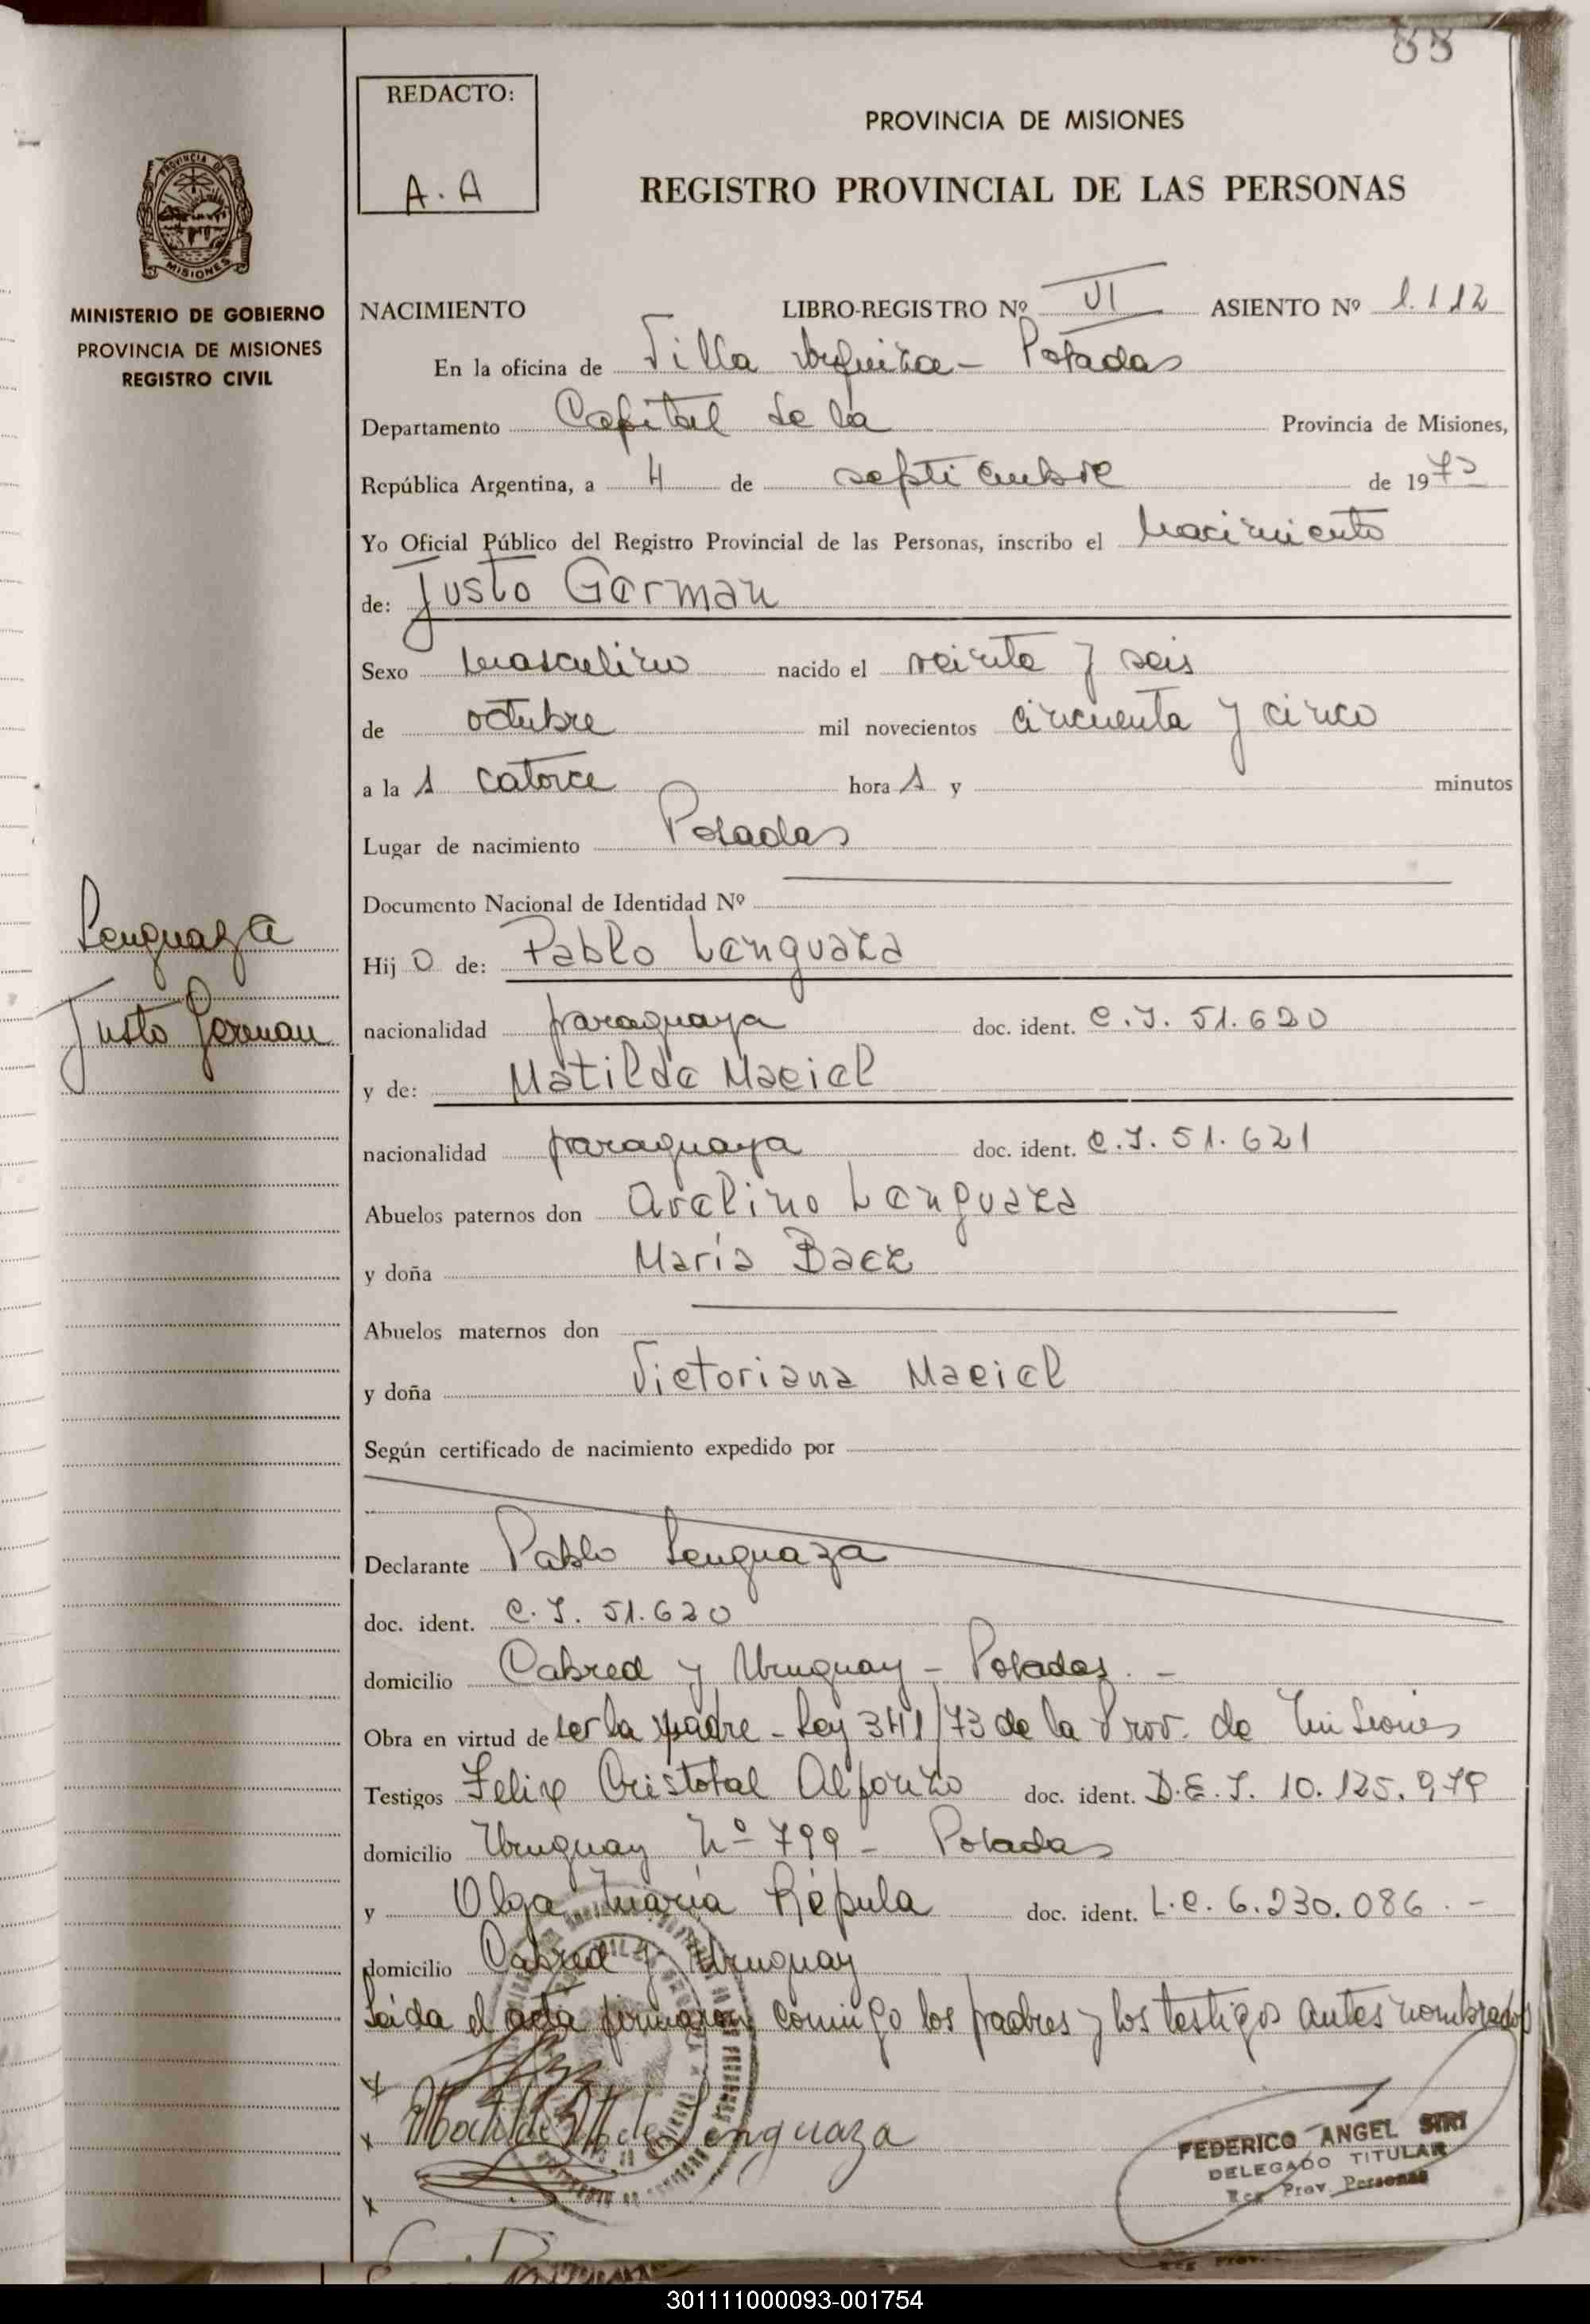 88
REDACTO:
A. A
PROVINCIA DE MISIONES
REGISTRO PROVINCIAL DE LAS PERSONAS
PROVINCIA DE
MISIONES
MINISTERIO DE GOBIERNO
PROVINCIA DE MISIONES
REGISTRO CIVIL
NACIMIENTO LIBRO-REGISTRO Nº VI ASIENTO Nº 1.112
En la oficina de Villa Urquiza - Posadas
Departamento Capital de la Provincia de Misiones,
República Argentina, a 4 de septiembre de 1973
Yo Oficial Público del Registro Provincial de las Personas, inscribo el Nacimiento
de: Justo German
Sexo masculino nacido el veinte y seis
de octubre mil novecientos cincuenta y cinco
a la s catorce hora s y minutos
Lugar de nacimiento Posadas
Documento Nacional de Identidad Nº
Lenguaza
Justo German
Hij o de: Pablo Lenguaza
nacionalidad paraguaya doc. ident. C.I. 51.620
y de: Matilde Maciel
nacionalidad paraguaya doc. ident. C.I. 51.621
Abuelos paternos don Avelino Lenguaza
y doña María Baez
Abuelos maternos don
y doña Victoriana Maciel
Según certificado de nacimiento expedido por
Declarante Pablo Lenguaza
doc. ident. C.I. 51.620
domicilio Cabred y Uruguay - Posadas. -
Obra en virtud de ser la padre - Ley 341/73 de la Prov. de Misiones
Testigos Felix Cristobal Alfonzo doc. ident. D.E.I. 10.125.979
domicilio Uruguay Nº 799 - Posadas
y Olga María Répula doc. ident. L.C. 6.230.086. -
domicilio Cabred y Uruguay
Leída el acta firmaron conmigo los padres y los testigos antes nombrados
x
x Matilde M de Lenguaza
x
FEDERICO ANGEL SIRI
DELEGADO TITULAR
Reg Prov Personas
301111000093-001754